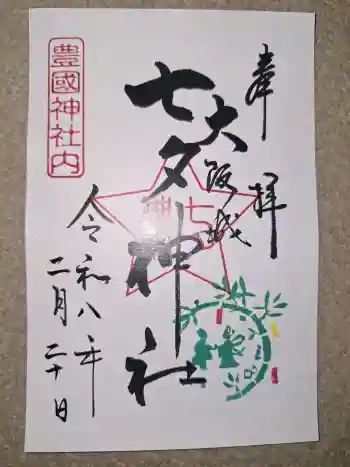 奉拝
大阪城
七夕神社
令和八年
二月二十日
豊國神社内